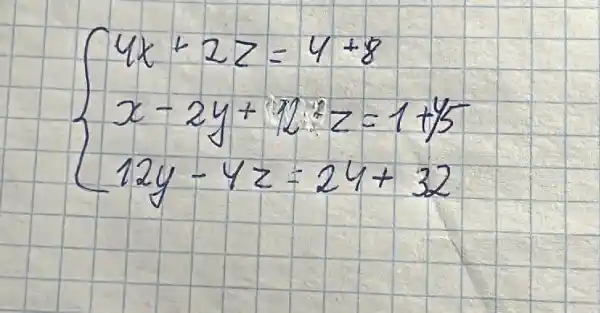 4x + 2z = 4 + 8
x - 2y + 12 z = 1 + 45
12y - 4z = 24 + 32